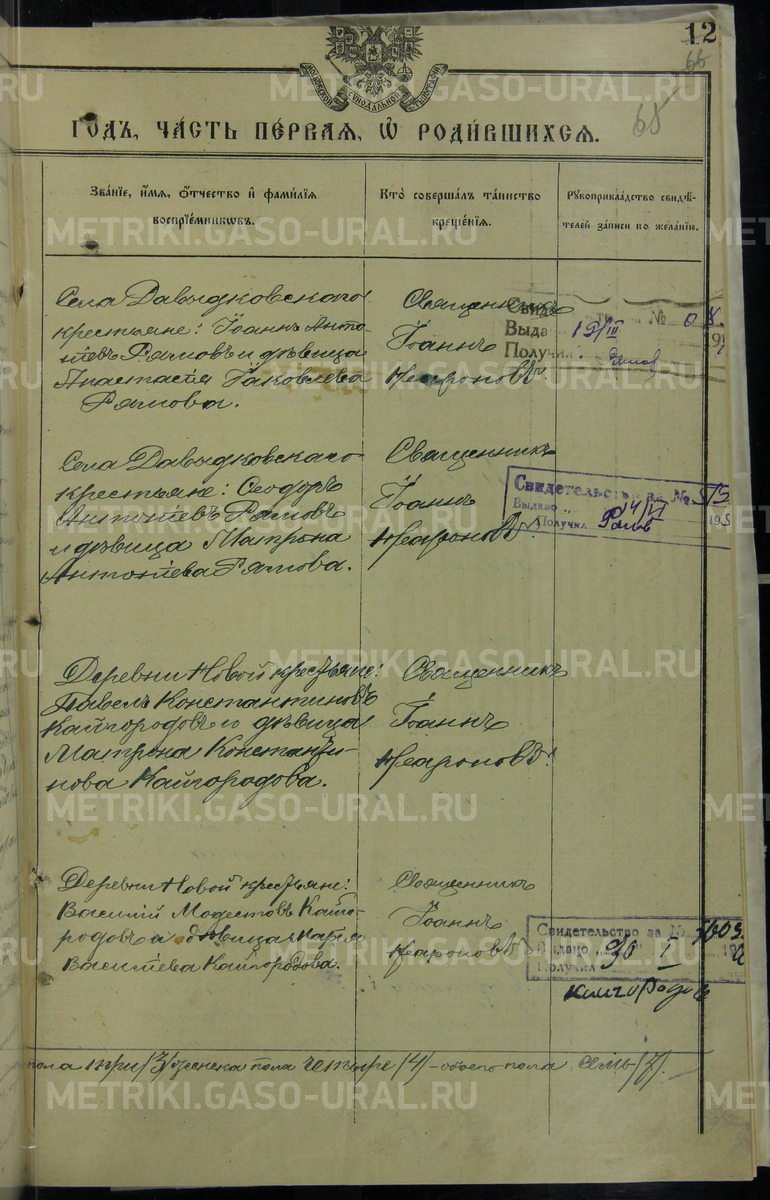 12
66
68
МОСКОВСКОЙ СѴНОДАЛЬНОЙ ТИПОГРАФІИ
ГОДЪ, ЧАСТЬ ПЕРВАЯ, Ѡ РОДИВШИХСЯ.
Званіе, имя, отчество и фамилія воспріемниковъ.
Кто совершалъ таинство крещенія.
Рукоприкладство свидѣтелей записи по желанію.
Села Давыдковскаго
крестьяне: Іоаннъ Анто-
ніевъ Рямовъ и дѣвица
Анастасія Іаковлева
Рямова.
Священникъ
Іоаннъ
Неароновъ.
Выда 19/III
Получил
Села Давыдковскаго
крестьяне: Ѳеодоръ
Антоніевъ Рямовъ
и дѣвица Матрона
Антоніева Рямова.
Священникъ
Іоаннъ
Неароновъ.
Свидетельство за №
Выдано
Получил
Деревни Новой крестьяне:
Павелъ Константиновъ
Кайгородовъ и дѣвица
Матрона Константи-
нова Кайгородова.
Священникъ
Іоаннъ
Неароновъ.
Деревни Новой крестьяне:
Василій Модестовъ Кайго-
родовъ и дѣвица Марія
Василіева Кайгородова.
Священникъ
Іоаннъ
Неароновъ
Свидетельство за №
Выдано 30 I
Получил
кайгородов
пола три /3/ женска пола четыре /4/ – обоего пола семь /7/.
METRIKI.GASO-URAL.RU